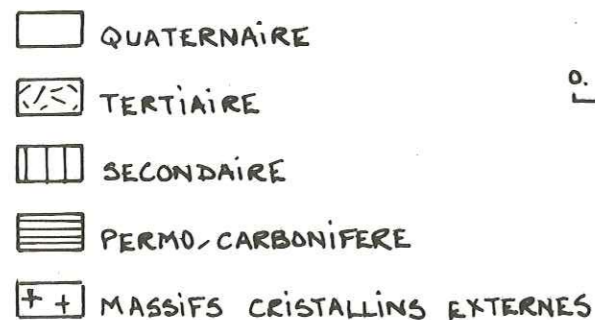 QUATERNAIRE
0.
TERTIAIRE
SECONDAIRE
PERMO-CARBONIFERE
MASSIFS CRISTALLINS EXTERNES